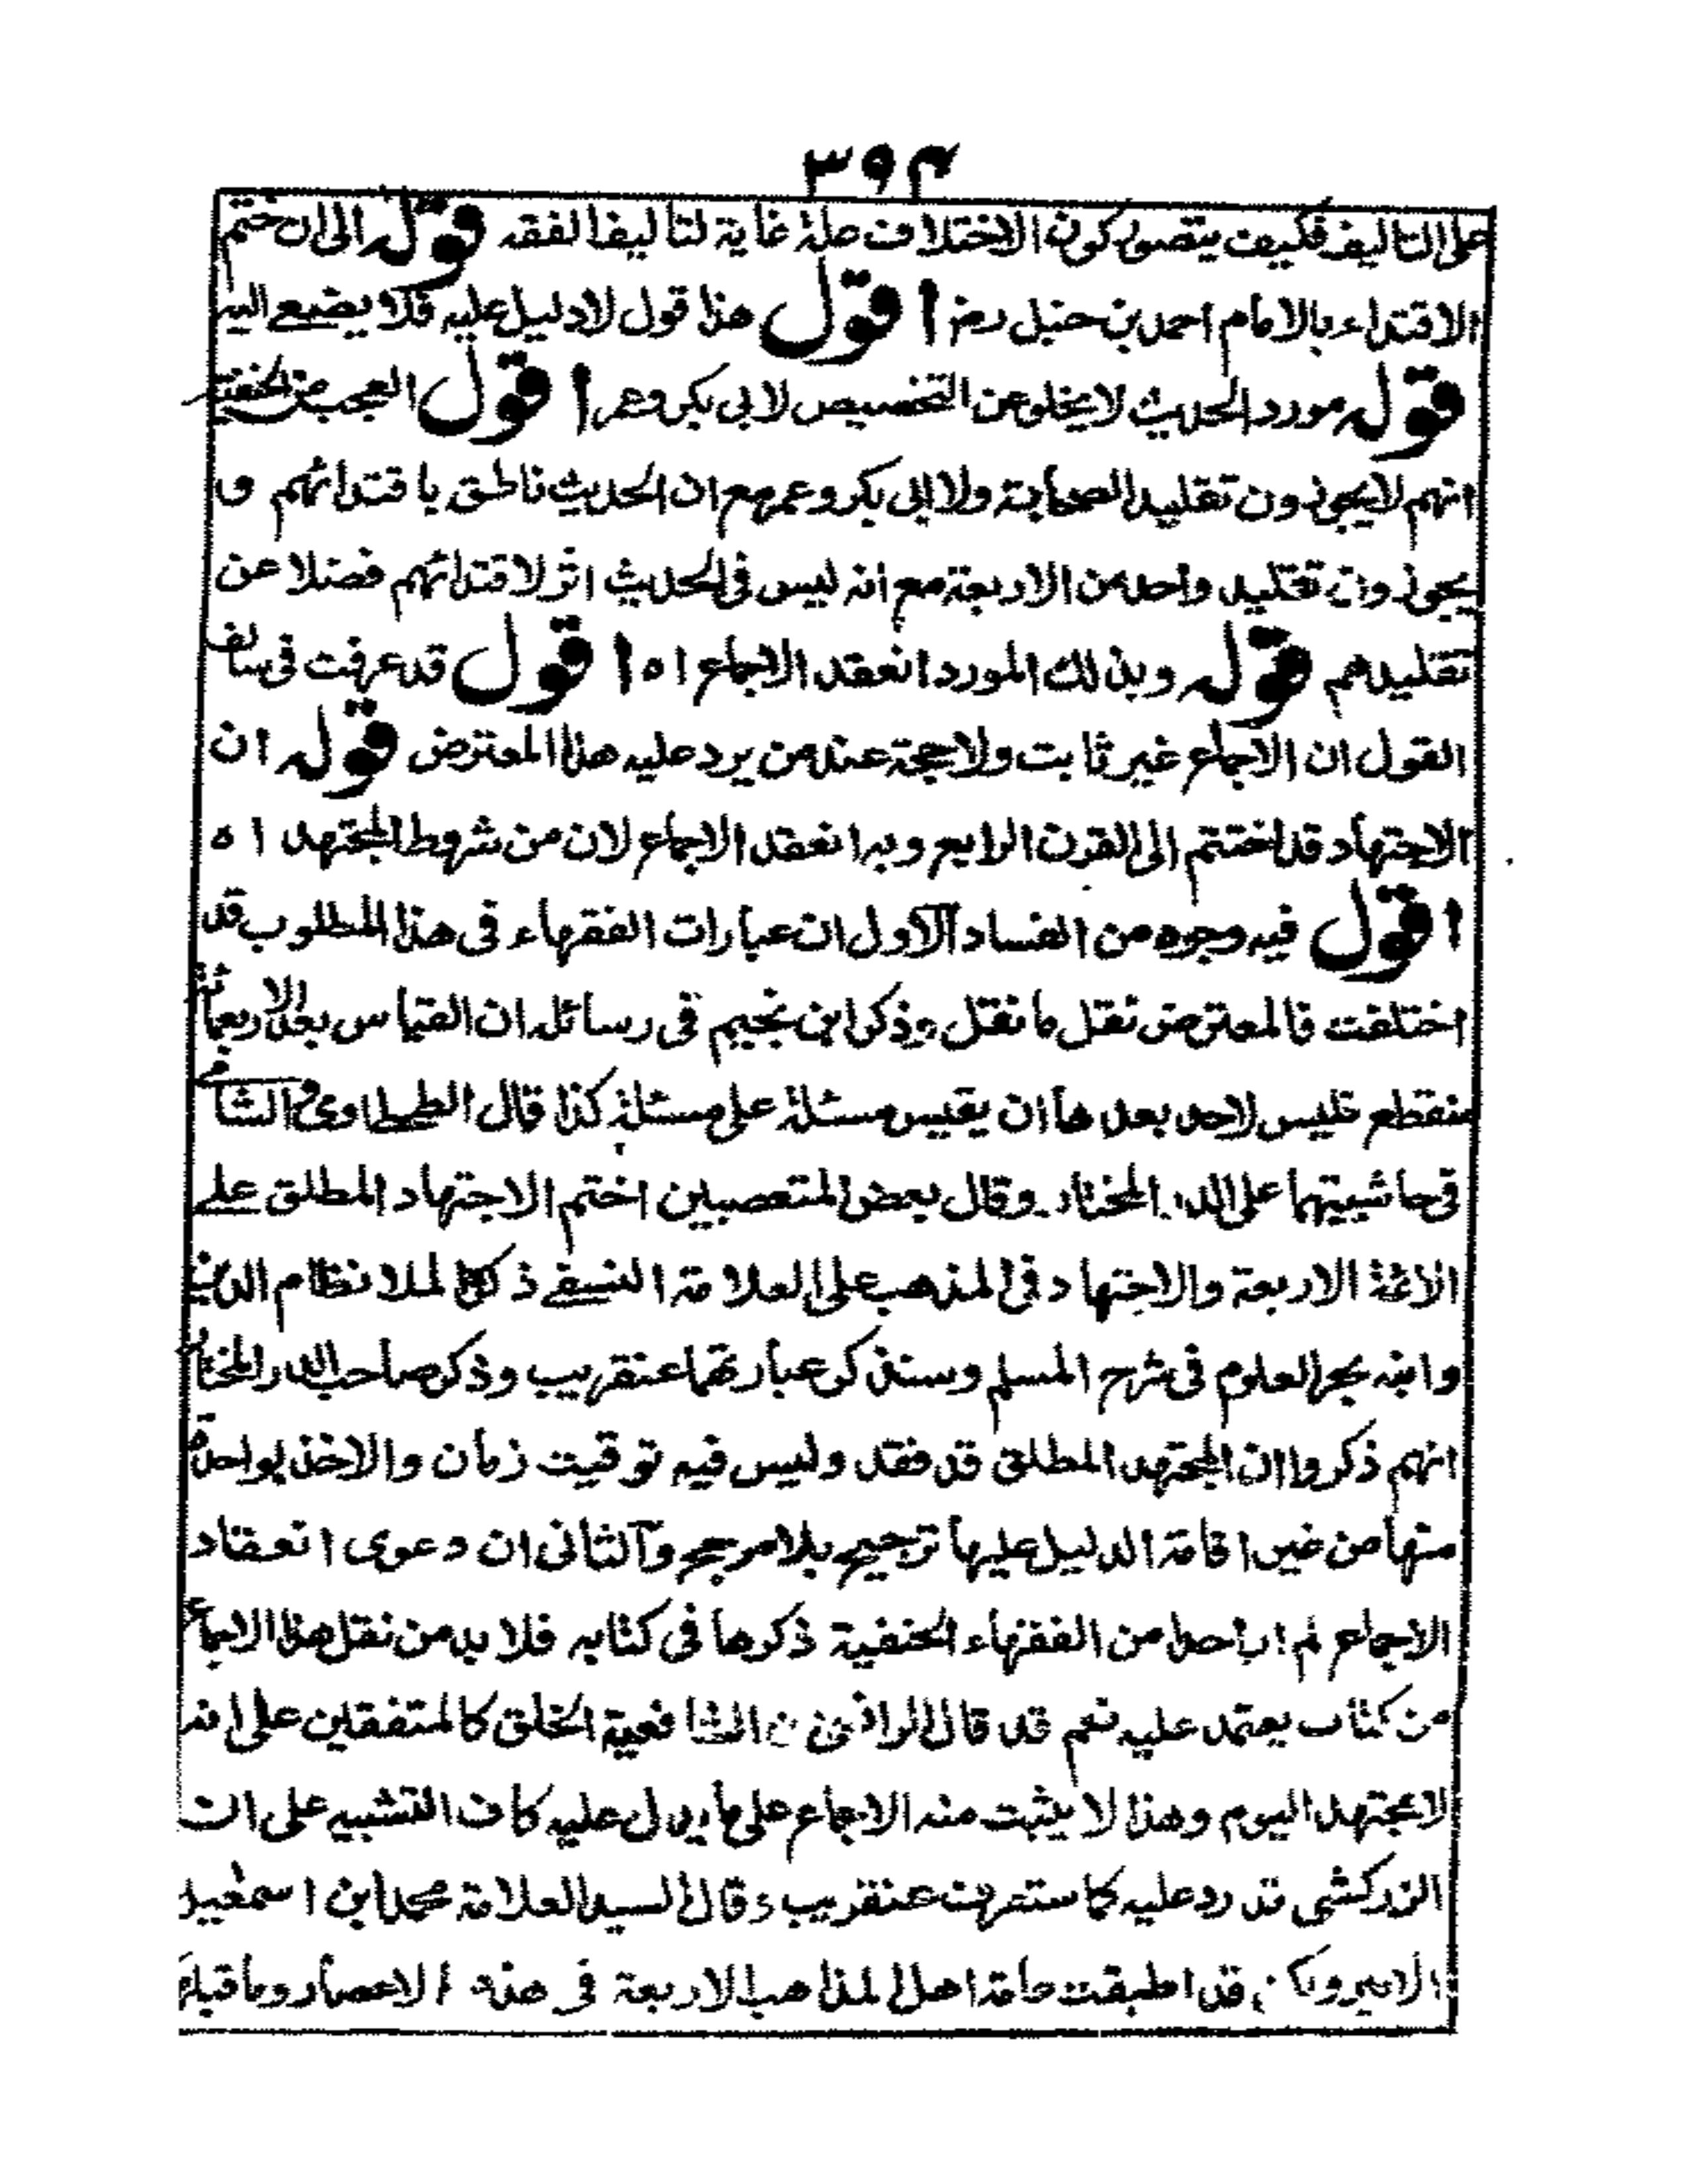 ٣٩٤
على التاليف فكيف يتصور كون الاختلاف علة غاية لتاليف الفقه قوله الى ان ختم
الاقتداء بالامام احمد بن حنبل رض اقول هذا قول لا دليل عليه فلا يضيع اليه
قوله مورد الحديث لا يخلو عن التخصيص لابي بكر وعمر اقول العجب من الحنفية
انهم لا يجوزون تقليد الصحابة ولا ابى بكر وعمر مع ان الحديث ناطق باقتدائهم و
يجوزون تقليد واحد من الاربعة مع انه ليس فى الحديث اثر لاقتدائهم فضلا عن
تقليدهم قوله وبذلك المورد انعقد الاجماع اه اقول قد عرفت فى سالف
القول ان الاجماع غير ثابت ولا حجة عند من يرد عليه هذا المعترض قوله ان
الاجتهاد قد اختتم الى القرن الرابع وبه انعقد الاجماع لان من شروط المجتهد اه
اقول فيه وجوه من الفساد الاول ان عبارات الفقهاء فى هذا المطلوب قد
اختلفت فالمعترض نقل ما نقل وذكر ابن نجيم فى رسائله ان القياس بعد الاربعمائة
منقطع فليس لاحد بعدها ان يقيس مسئلة على مسئلة كذا قال الطحطاوى والشامى
فى حاشيتيهما على الدر المختار وقال بعض المتعصبين اختم الاجتهاد المطلق على
الائمة الاربعة والاجتهاد فى المذهب على العلامة النسفى ذكره الملا نظام الدين
وابنه بحر العلوم فى شرح المسلم وسنذكر عبارتهما عنقريب وذكر صاحب الدر المختار
انهم ذكروا ان المجتهد المطلق قد فقد وليس فيه توقيت زمان والاخذ بواحدة
منها من غير اقامة الدليل عليها ترجيح بلا مرجح والثانى ان دعوى انعقاد
الاجماع لم ار احدا من الفقهاء الحنفية ذكرها فى كتابه فلا بد من نقل هذا الاجماع
من كتاب يعتمد عليه نعم قد قال الرافعى من الشافعية الخلق كالمتفقين على انه
لا مجتهد اليوم وهذا لا يثبت منه الاجماع على ما يدل عليه كاف التشبيه على ان
الزركشى قد رد عليه كما ستعرف عنقريب وقال السيد العلامة محمد ابن اسمعيل
الامير قد اطبقت عامة اهل المذاهب الاربعة فى هذه الاعصار وما قبلها